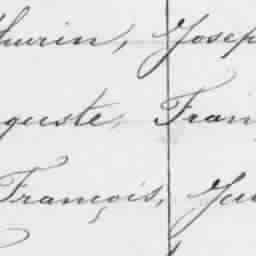 thurin, Josep
guste, Fran
François, Ju